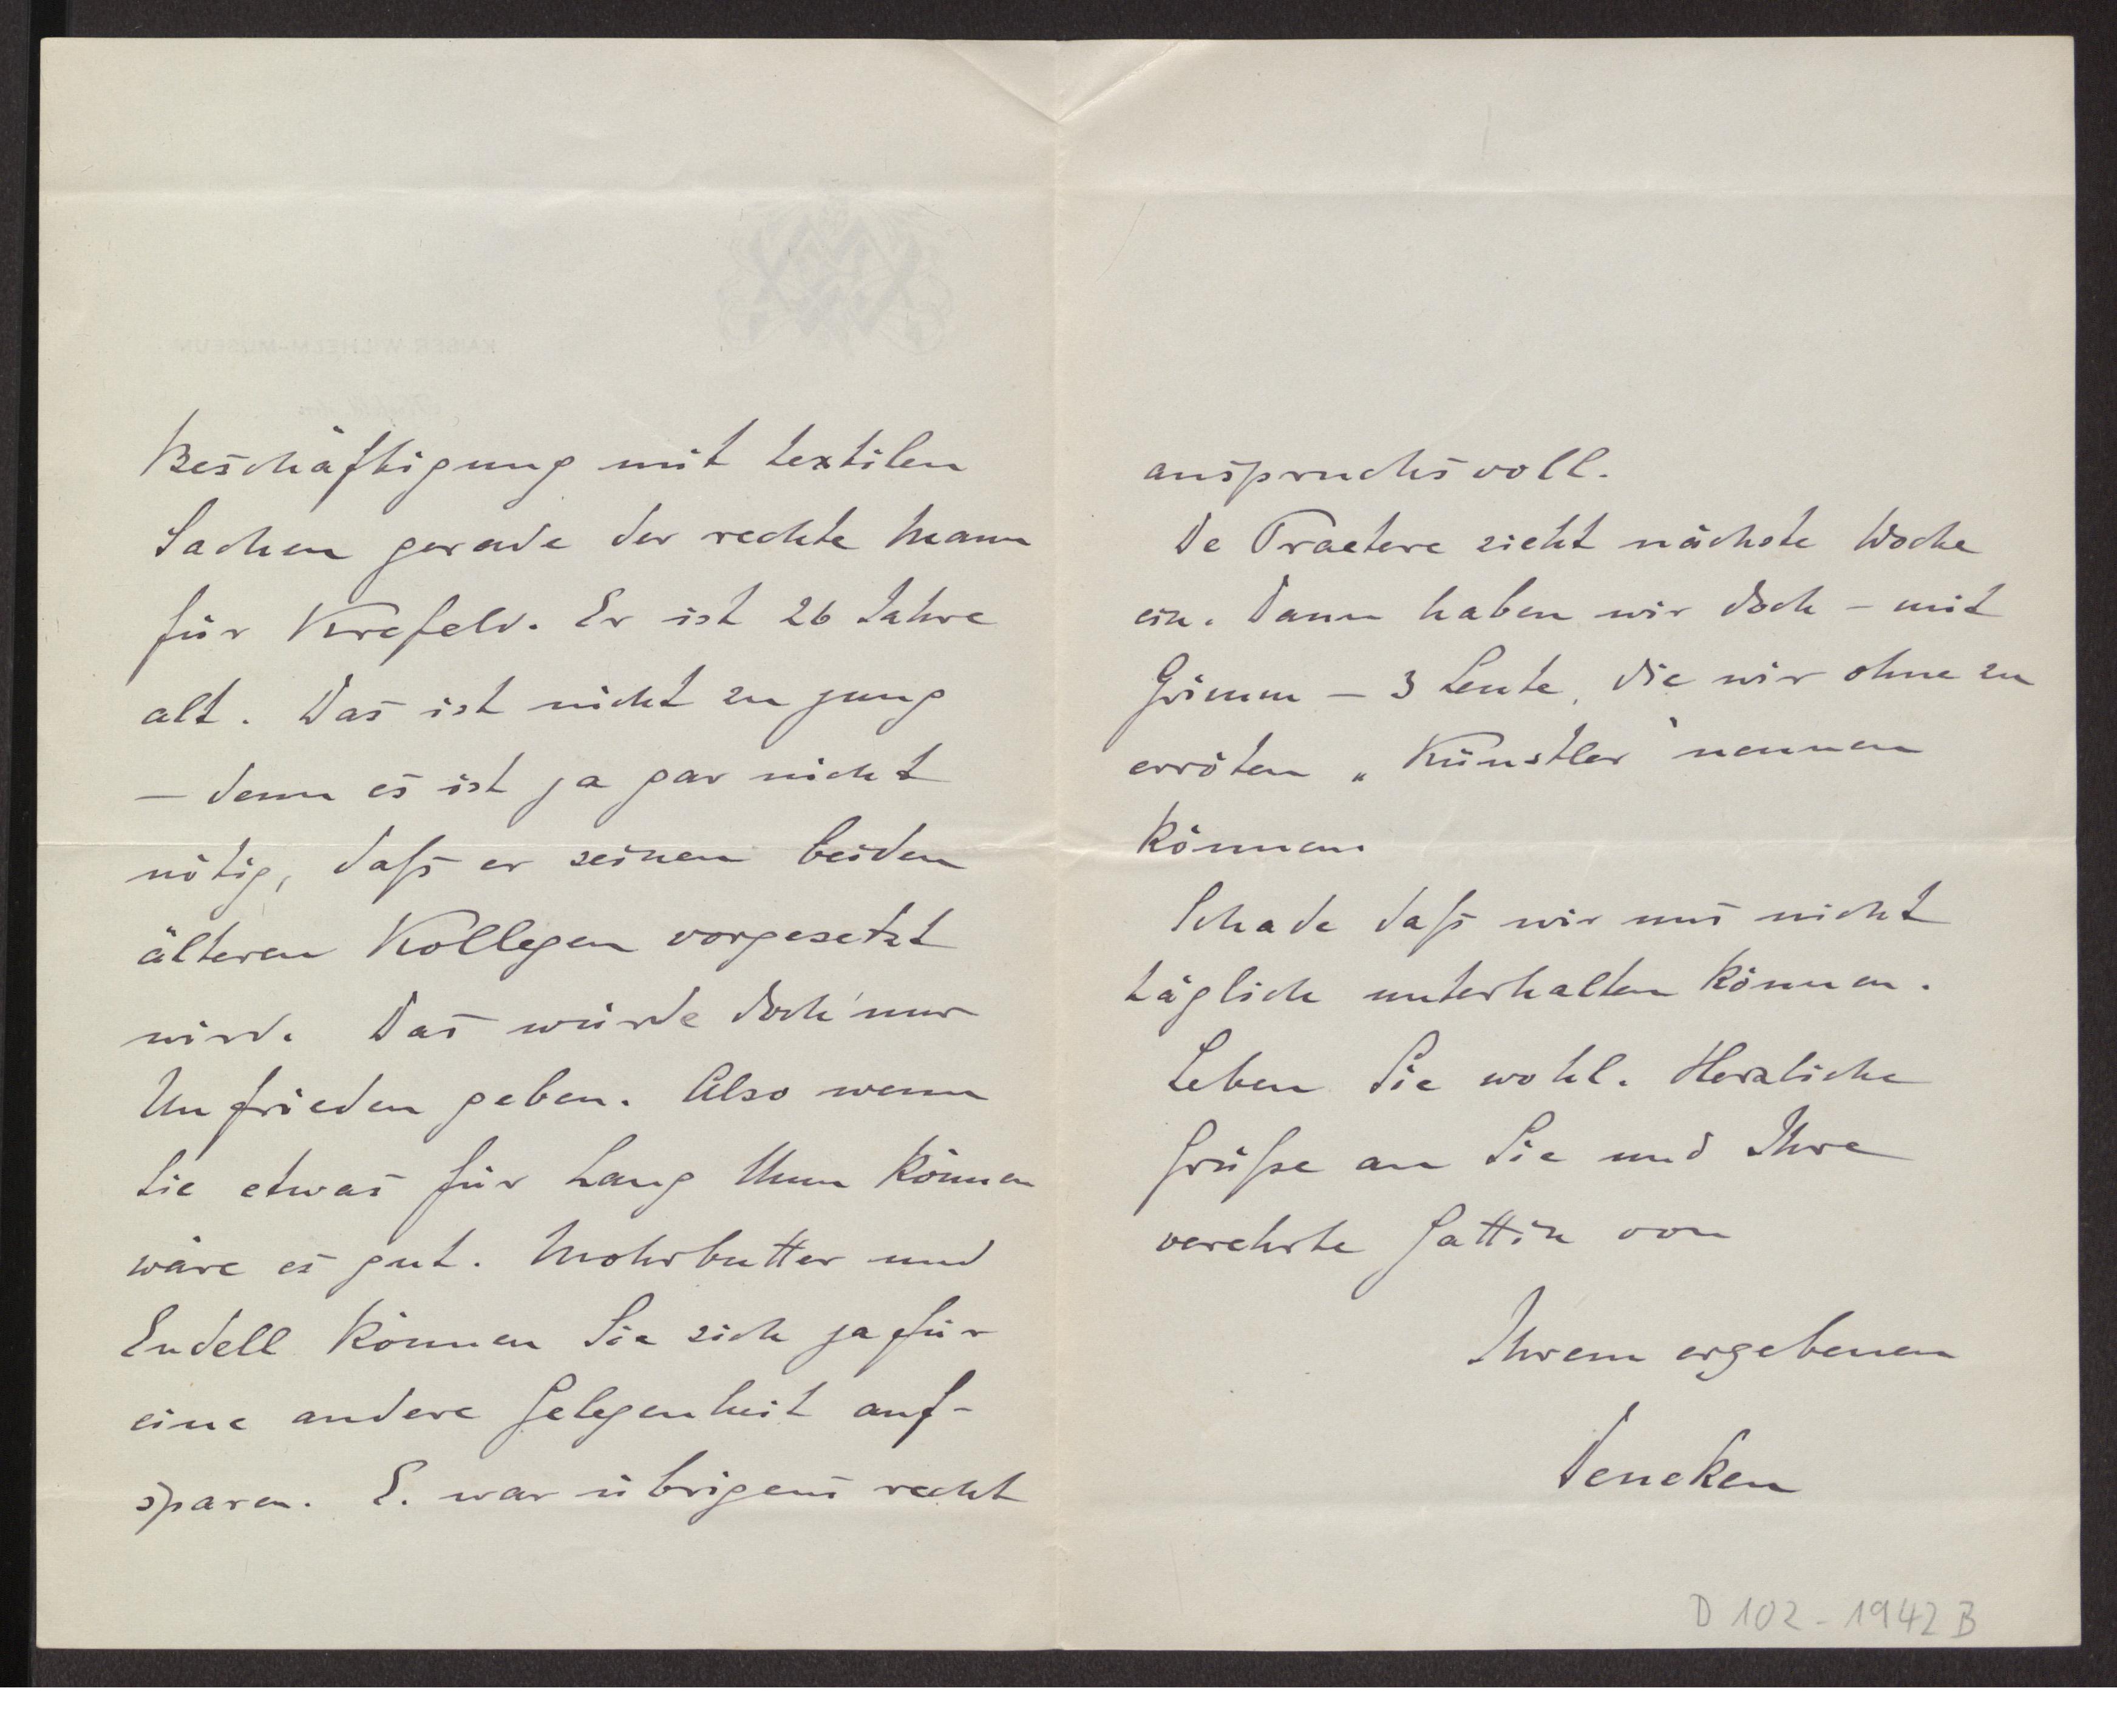 Beschäftigung mit textilen
Sachen gerade der rechte Mann
für Krefeld. Er ist 26 Jahre
alt. Das ist nicht zu jung
– denn es ist ja gar nicht
nötig, daß er seinen beiden
älteren Kollegen vorgesetzt
wird. Das würde doch nur
Unfrieden geben. Also wenn
Sie etwas für Lang thun können
wäre es gut. Mohrbutter und
Endell können Sie sich ja für
eine andere Gelegenheit auf-
sparen. E. war übrigens recht
anspruchsvoll.
De Praetere zieht nächste Woche
ein. Dann haben wir doch – mit
Grimm – 3 Leute, die wir ohne zu
erröten „Künstler“ nennen
können.
Schade daß wir uns nicht
täglich unterhalten können.
Leben Sie wohl. Herzliche
Grüße an Sie und Ihre
verehrte Gattin von
Ihrem ergebenen
Deneken
D 102 - 1942 B
KAISER WILHELM-MUSEUM